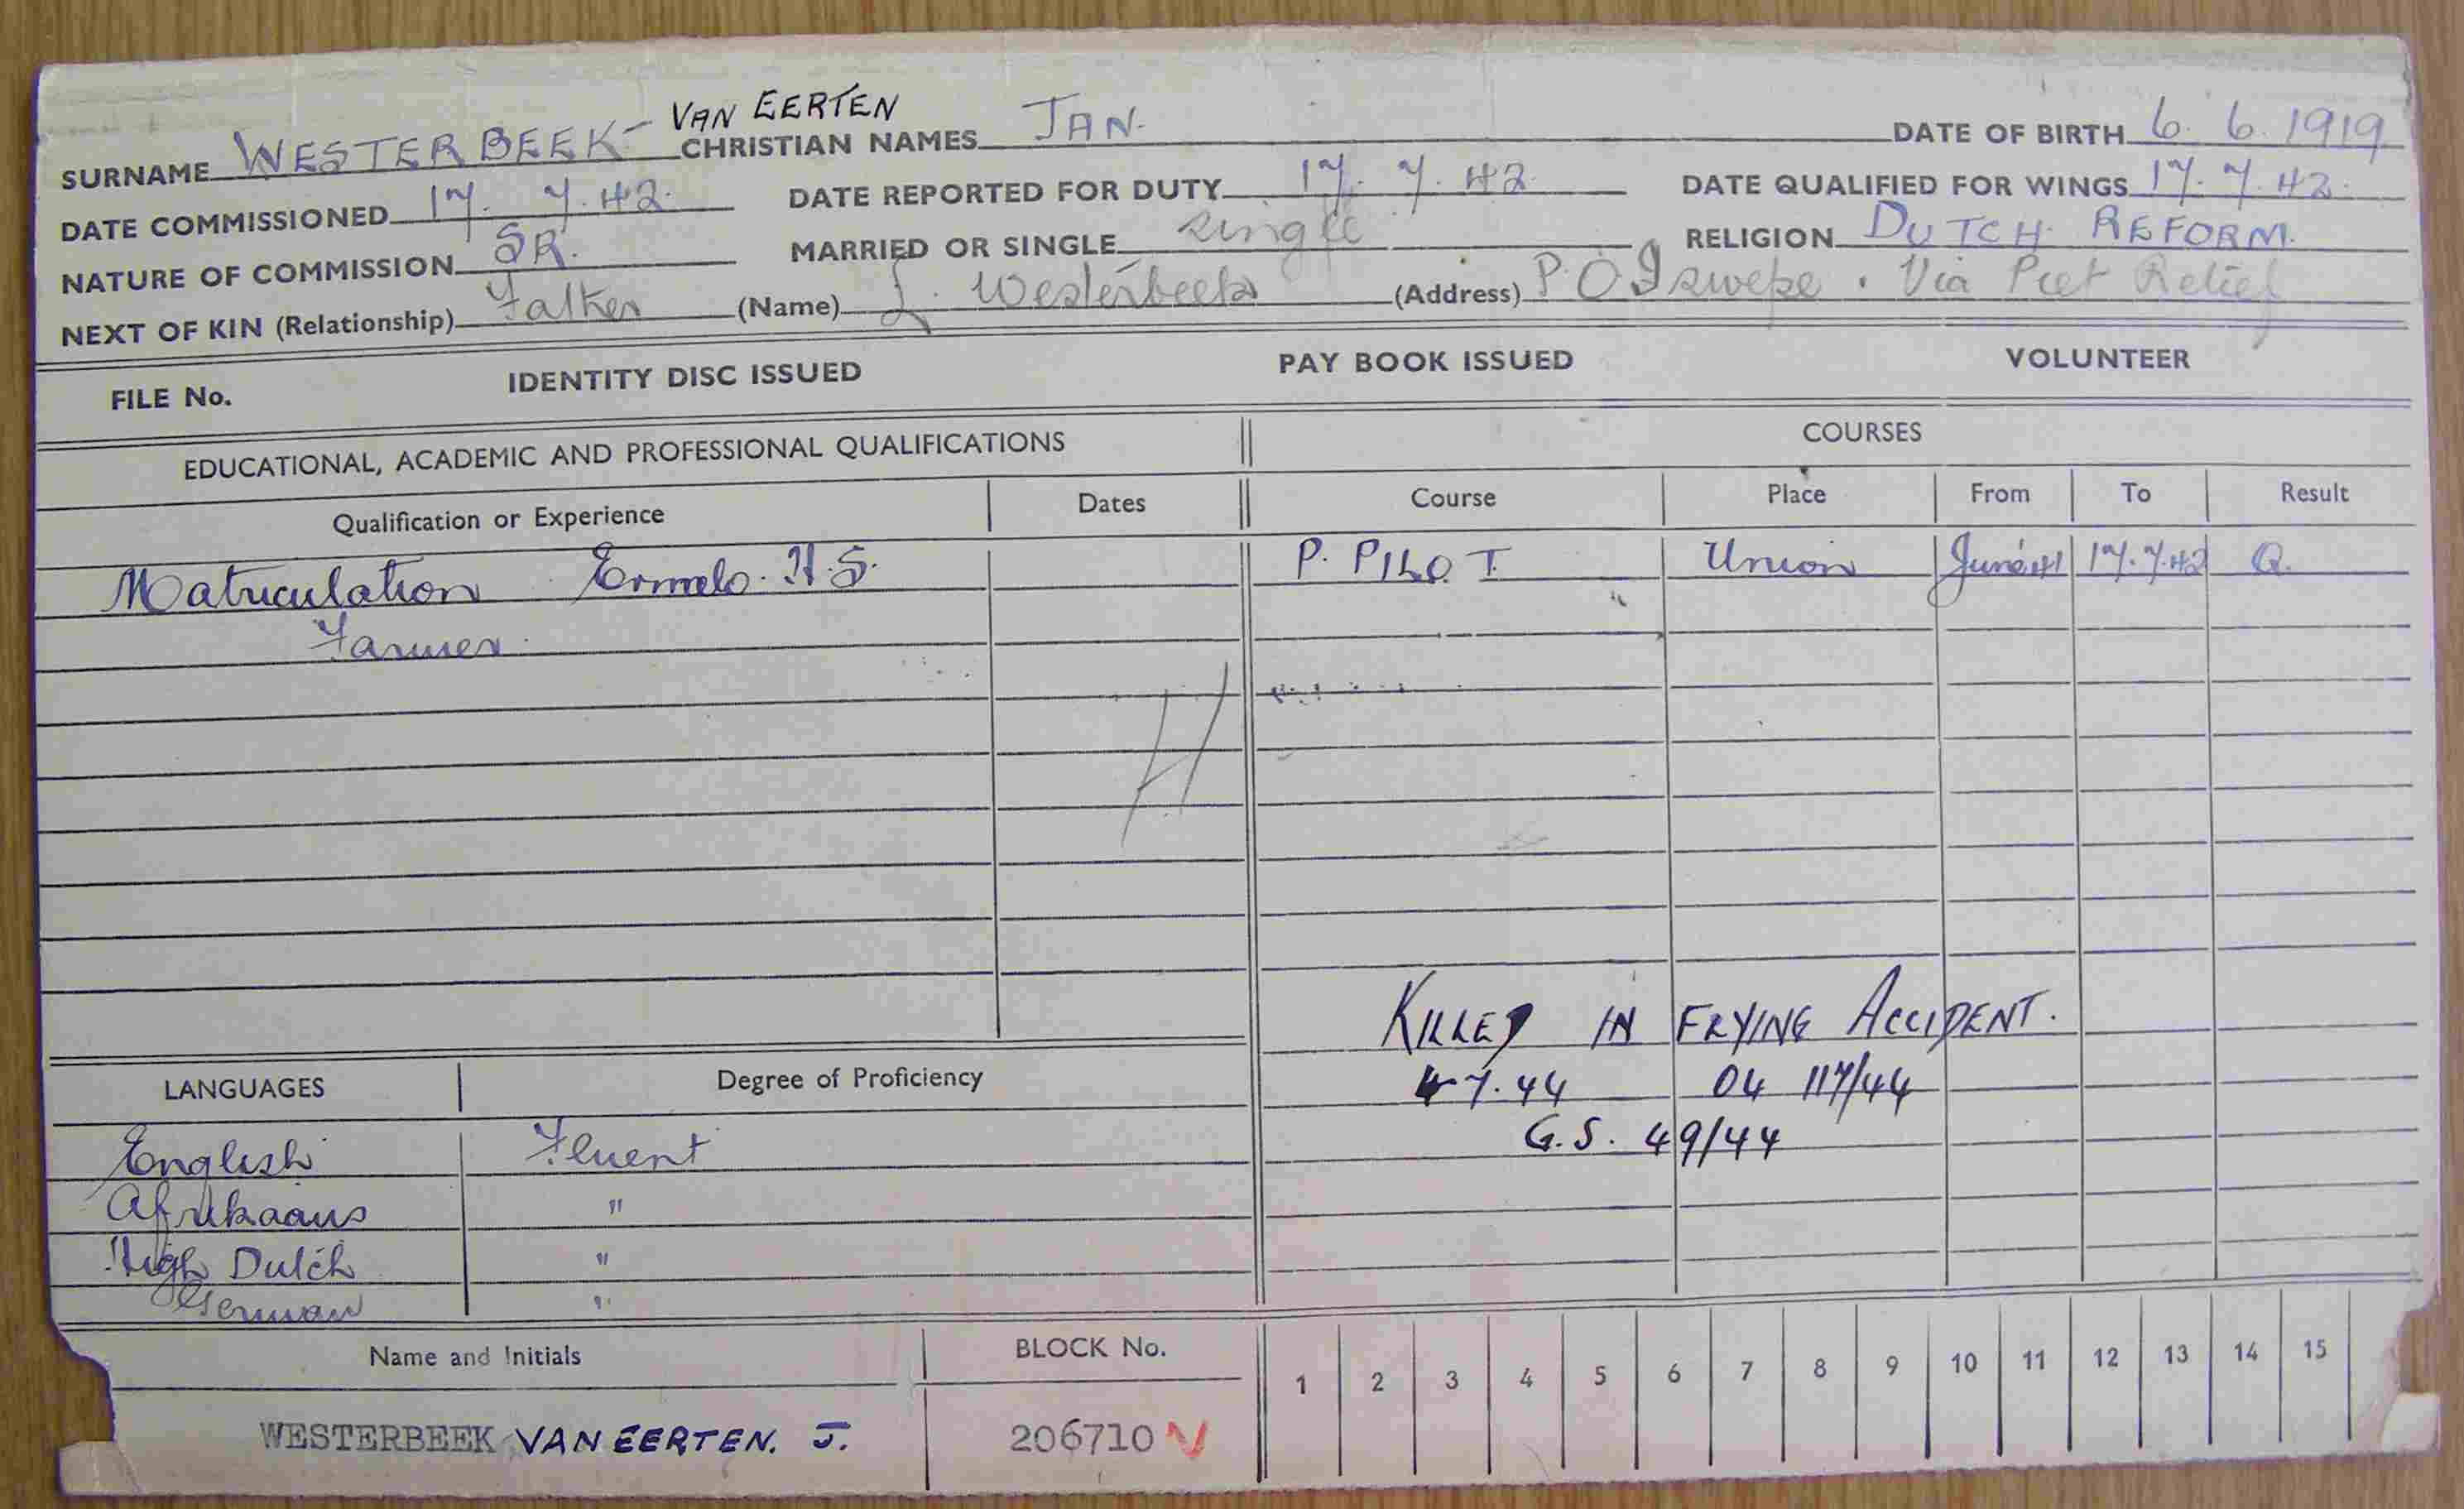 VAN EERTEN
SURNAME WESTERBEEK- CHRISTIAN NAMES JAN. DATE OF BIRTH 6. 6. 1919
DATE COMMISSIONED 17. 7.42. DATE REPORTED FOR DUTY 17. 7.42 DATE QUALIFIED FOR WINGS 17.7.42.
NATURE OF COMMISSION SR. MARRIED OR SINGLE Single RELIGION DUTCH REFORM.
NEXT OF KIN (Relationship) Father (Name) J. Westerbeek (Address) P.O Iswepe. Via Piet Retief
FILE No. IDENTITY DISC ISSUED PAY BOOK ISSUED VOLUNTEER
EDUCATIONAL, ACADEMIC AND PROFESSIONAL QUALIFICATIONS COURSES
Qualification or Experience Dates Course Place From To Result
Matriculation Ermelo. H.S. P. PILOT Union June 41 17.7.42 Q.
Farmer.
KILLED IN FLYING ACCIDENT.
7.44 04 117/44
G.S. 49/44
LANGUAGES Degree of Proficiency
English Fluent
Afrikaans "
High Dutch "
German "
Name and Initials BLOCK No. 1 2 3 4 5 6 7 8 9 10 11 12 13 14 15
WESTERBEEK VAN EERTEN. J. 206710 V